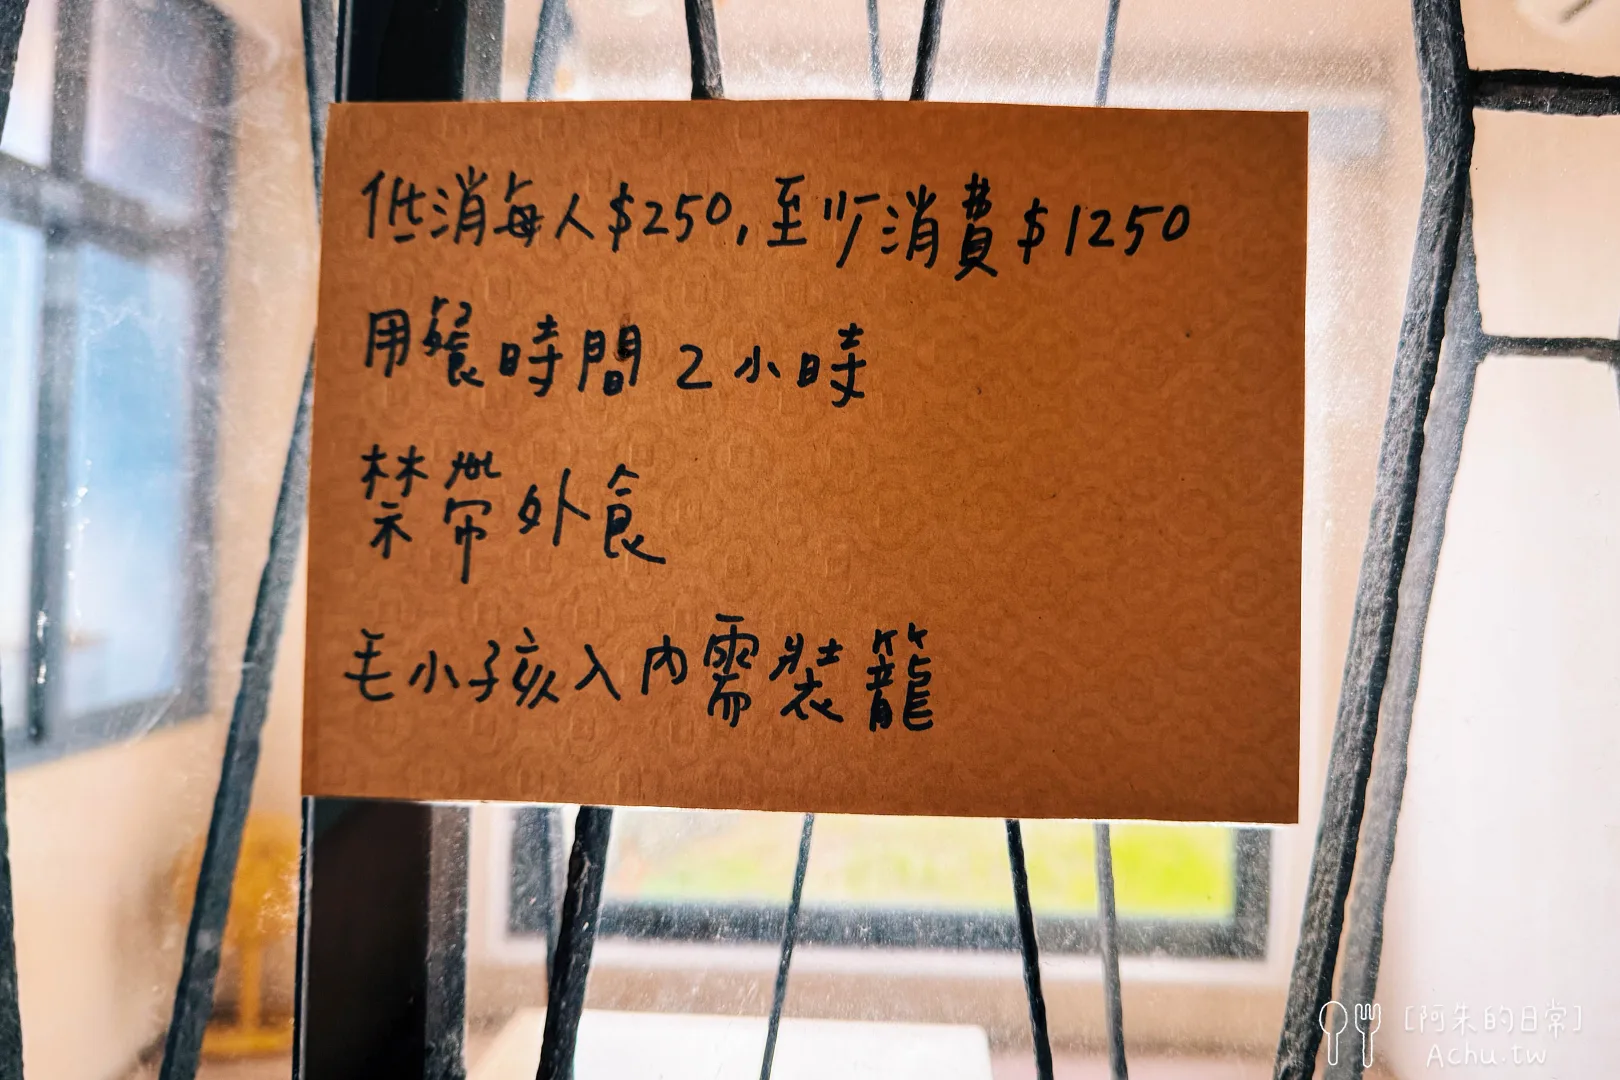 低消每人$250,至少消費$1250
用餐時間2小時
禁帶外食
毛小孩入內需裝籠
[阿朱的日常]
Achu.tw